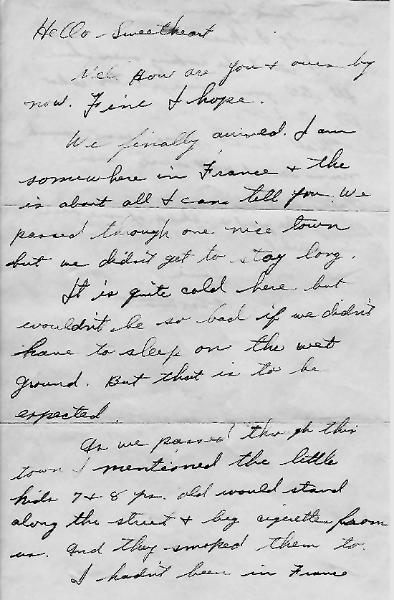 Hello - Sweetheart
How are you & ours by
now. Fine I hope.
We finally arrived. I am
somewhere in France & the
is about all I can tell you. We
passed through one nice town
but we didn't get to stay long.
It is quite cold here but
wouldn't be so bad if we didn't
have to sleep on the wet
ground. But that is to be
expected.
As we passed though this
town I mentioned the little
kids 7 & 8 yrs. old would stand
along the street & beg cigarettes from
us. And they smoked them to.
I hadn't been in France